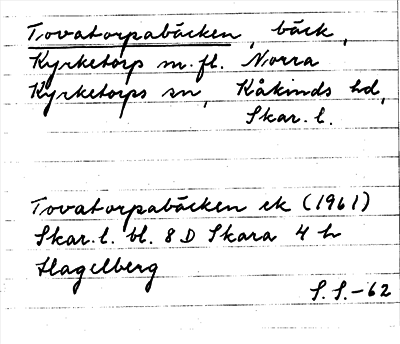 Tovatorpabäcken, bäck,
Kyrketorp m.fl. Norra
Kyrketorps sn, Kåkinds hd,
Skar. l.
Tovatorpabäcken ek (1961)
Skar. l. bl. 8 D Skara 4 h
Hagelberg
S. S. -62